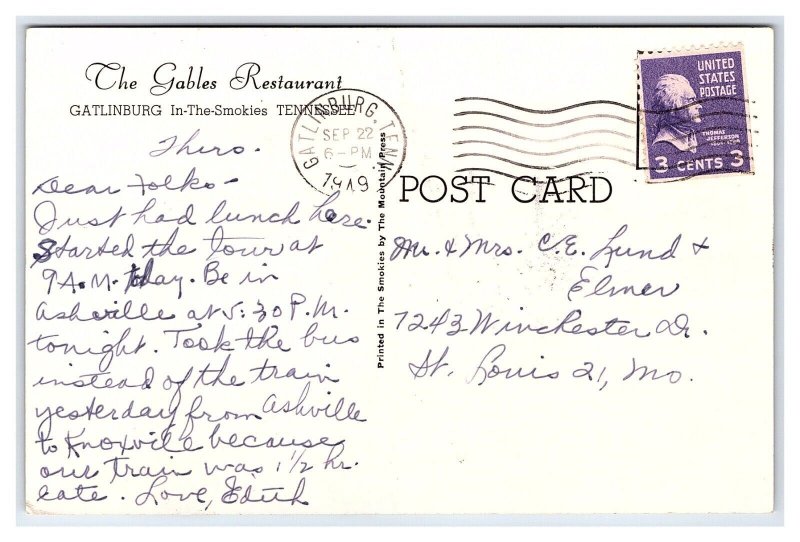 The Gables Restaurant
GATLINBURG In-The-Smokies TENNESSEE
Thurs.
Dear Folks -
Just had lunch here.
Started the tour at
9 A.M. today. Be in
Asheville at 5:30 P.M.
tonight. Took the bus
instead of the train
yesterday from Ashville
to Knoxville because
our train was 1 1/2 hr.
late. Love, Edith
GATLINBURG, TENN.
SEP 22
6-PM
1949
Printed in The Smokies by The Mountain Press
UNITED
STATES
POSTAGE
THOMAS
JEFFERSON
3 CENTS 3
POST CARD
Mr. & Mrs. C.E. Lund &
Elmer
7243 Winchester Dr.
St. Louis 21, Mo.